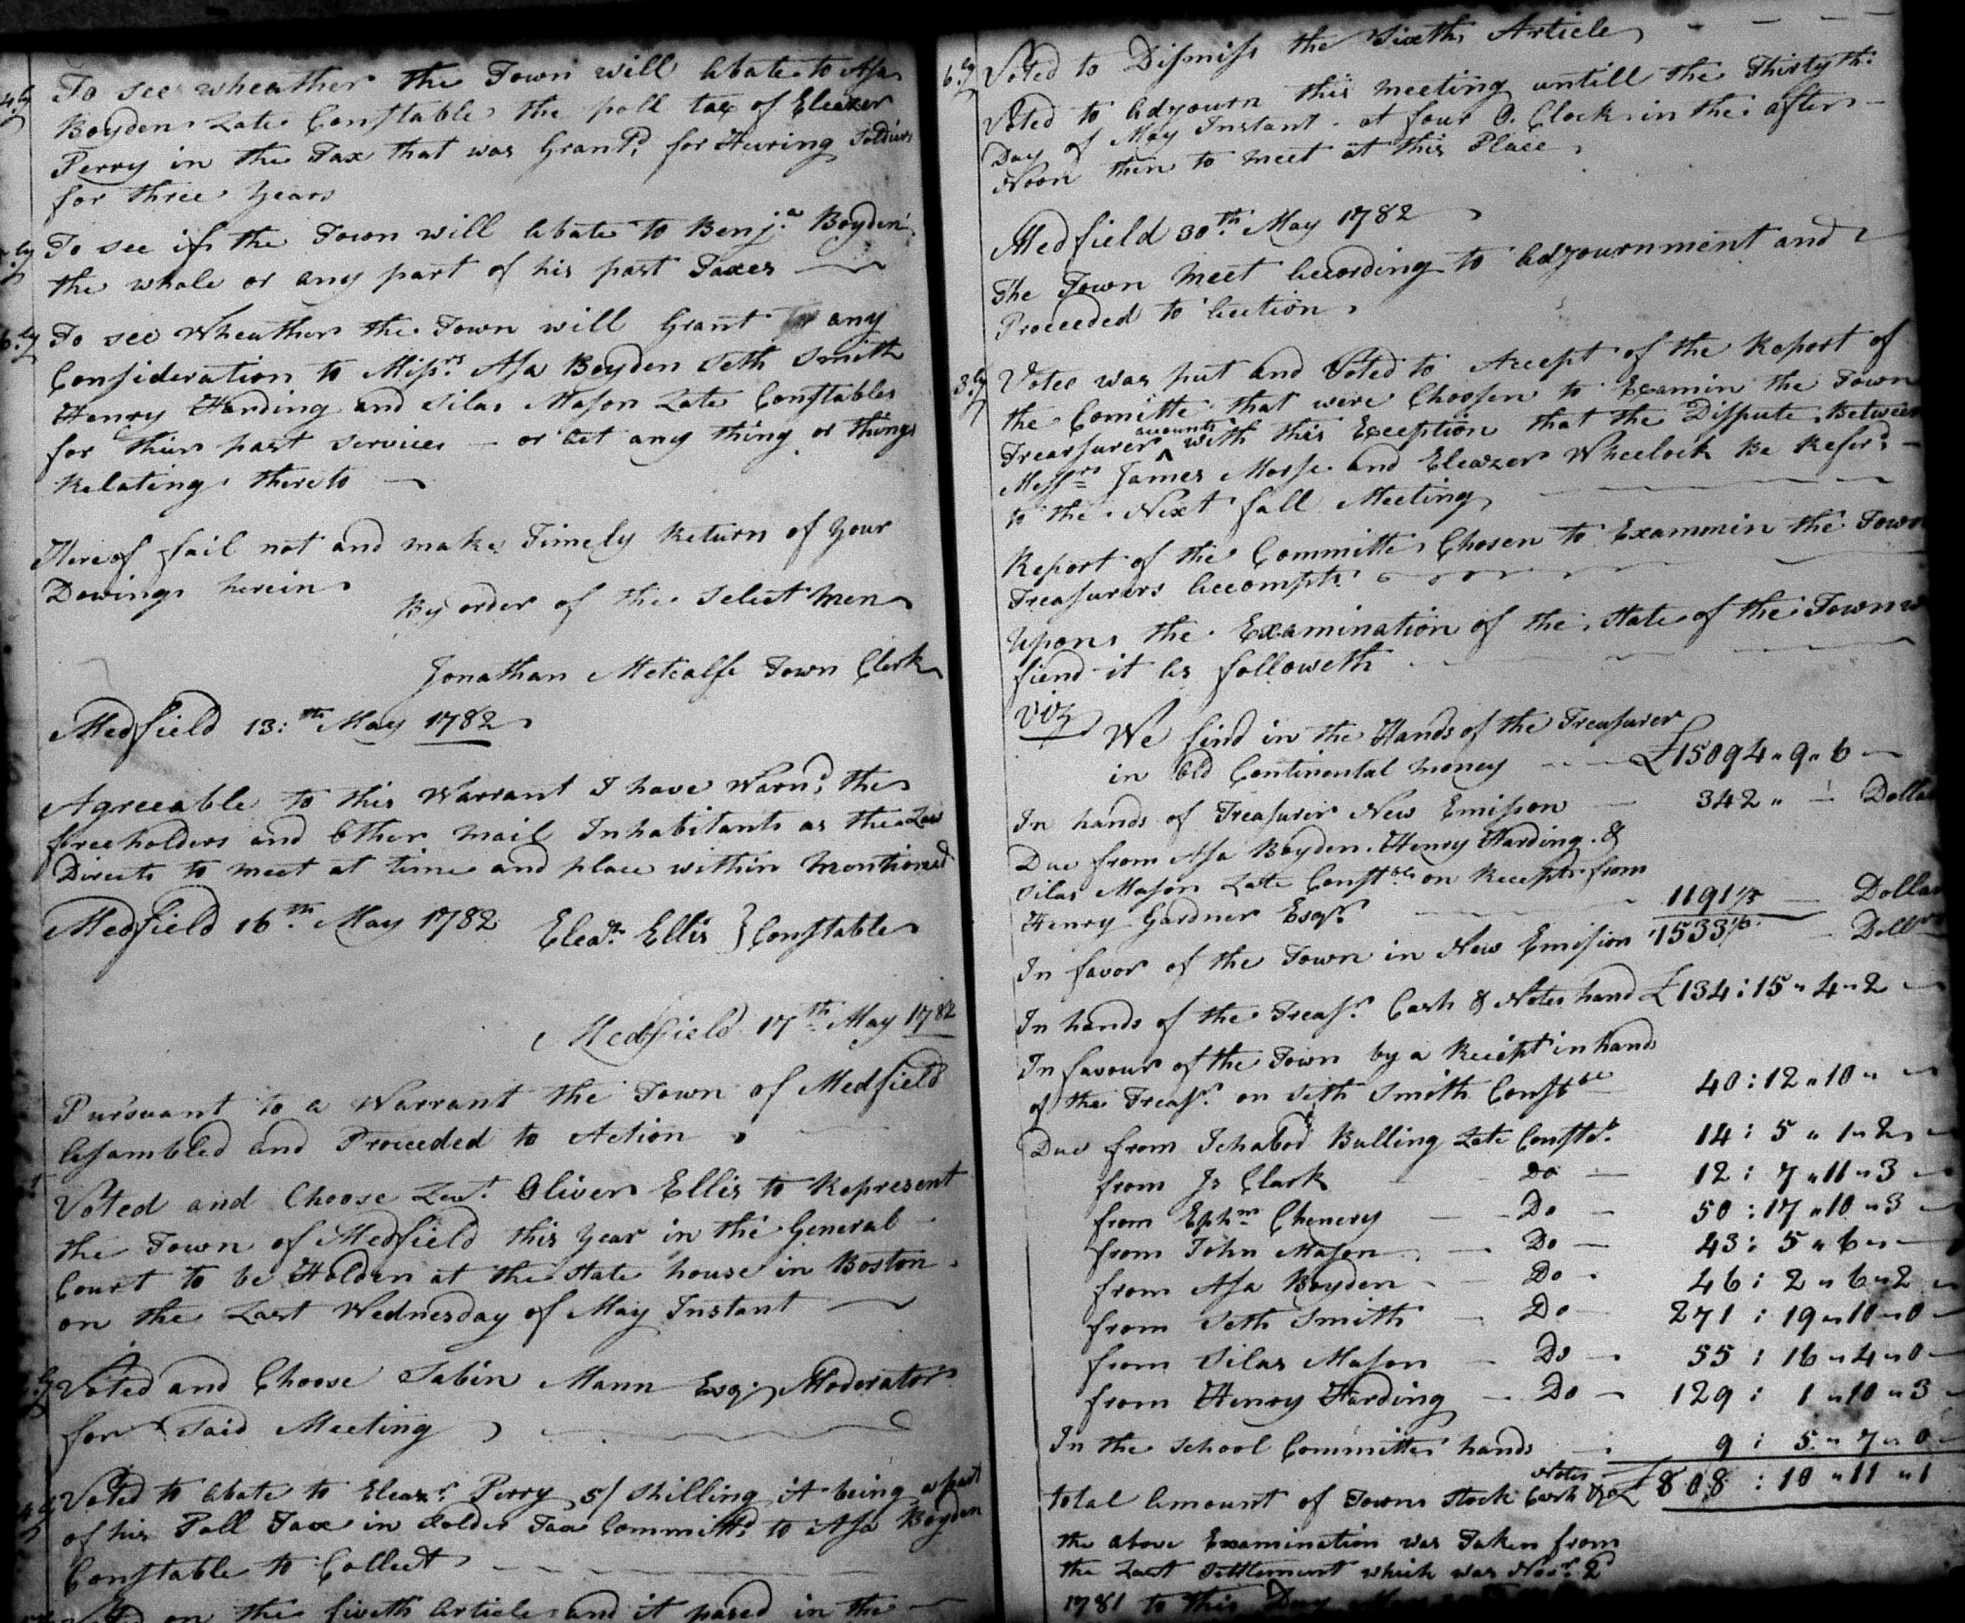 4ly To see wheather the Town will abate to Asa
Boyden Late Constable the poll tax of Eleazer
Perry in the Tax that was Grantd, for Hiering Soldiers
for three years
ly To see if the Town will abate to Benja Boyden
the whole or any part of his past Taxes
6ly To see Wheather the Town will Grant any
Consideration to Missrs Asa Boyden Seth Smith
Henry Harding and Silas Mason Late Constables
for thier past services - or act any thing or things
Relating thereto
Hereof fail not and make Timely Return of your
Dowings herein
By order of the Select men
Jonathan Metcalfe Town Clerk
Medfield 13:th May 1782
Agreeable to this Warrant I have Warnd, the
freeholders and Other mail Inhabitants as the Law
Directs to meet at time and place within mentioned
Medfield 16th May 1782 Eleazr Ellis } Constable
Medfield 17th May 1782
Pursuant to a Warrant the Town of Medfield
assambled and Proceeded to Action
Voted and Choose Leut. Oliver Ellis to Represent
the Town of Medfield this year in the General
Court to be Holden at the State house in Boston
on the Last Wednesday of May Instant
Voted and Choose Jabin Mann Esqr, Moderator
for Said Meeting
4ly Voted to abate to Eleazr. Perry 5/ shilling it being a part
of his Poll Tax in Solder Tax Committd to Asa Boyden
Constable to Collect
on the fiveth Article and it pased in the
6ly Voted to Dismiss the Sixth Article
Voted to adjourn this meeting untill the Thirtyth
Day of May Instant at four O. Clock in the after
Noon then to meet at this Place
Medfield 30th May 1782
The Town Meet according to adjournment and
Proceeded to action
3ly Votee was put and Voted to Accept of the Report of
the Comitte that were Choosen to Examin the Town
Treasurer accounts with this Exception that the Dispute Between
Messrs James Morse and Eleazer Wheelock be Referd
to the Next fall Meeting
Report of the Committe Chosen to Exammin the Town
Treasurers accompts
Upon the Examination of the State of the Town we
fiend it as followeth
viz We find in the Hands of the Treasurer
in old Continental money £15094 " 9 " 6
In hands of Treasurer New Emission 342 " - Dollars
Due from Asa Boyden, Henry Harding &
Silas Mason Late Constbles on Recepts from
Henry Gardner Esqr. 1191 1/3 Dollars
In favor of the Town in New Emission 1533 1/3 Dollars
In hands of the Treasr Cash & Notes hand £134:15 " 4 " 2
In favour of the Town by a Recipt in hands
of the Treasr on Seth Smith Constble 40:12 " 10 "
Due from Ichabod Bulling Late Constbe 14: 5 " 1 " 2
from Js Clark Do 12: 7 " 11 " 3
from Ephm Chenery Do 50:17 " 10 " 3
from John Mason Do 43: 5 " 6 "
from Asa Boyden Do 46: 2 " 6 " 2
from Seth Smith Do 271: 19 " 10 " 0
from Silas Mason Do 55: 16 " 4 " 0
from Henry Harding Do 129: 1 " 10 " 3
In the School Committe hands 9: 5 " 7 " 0
total amount of Towns Stock Cash & Notes £808:10 " 11 " 1
the above Examination was Taken from
the Last Settlement which was Novr. 2d
1781 to this Day